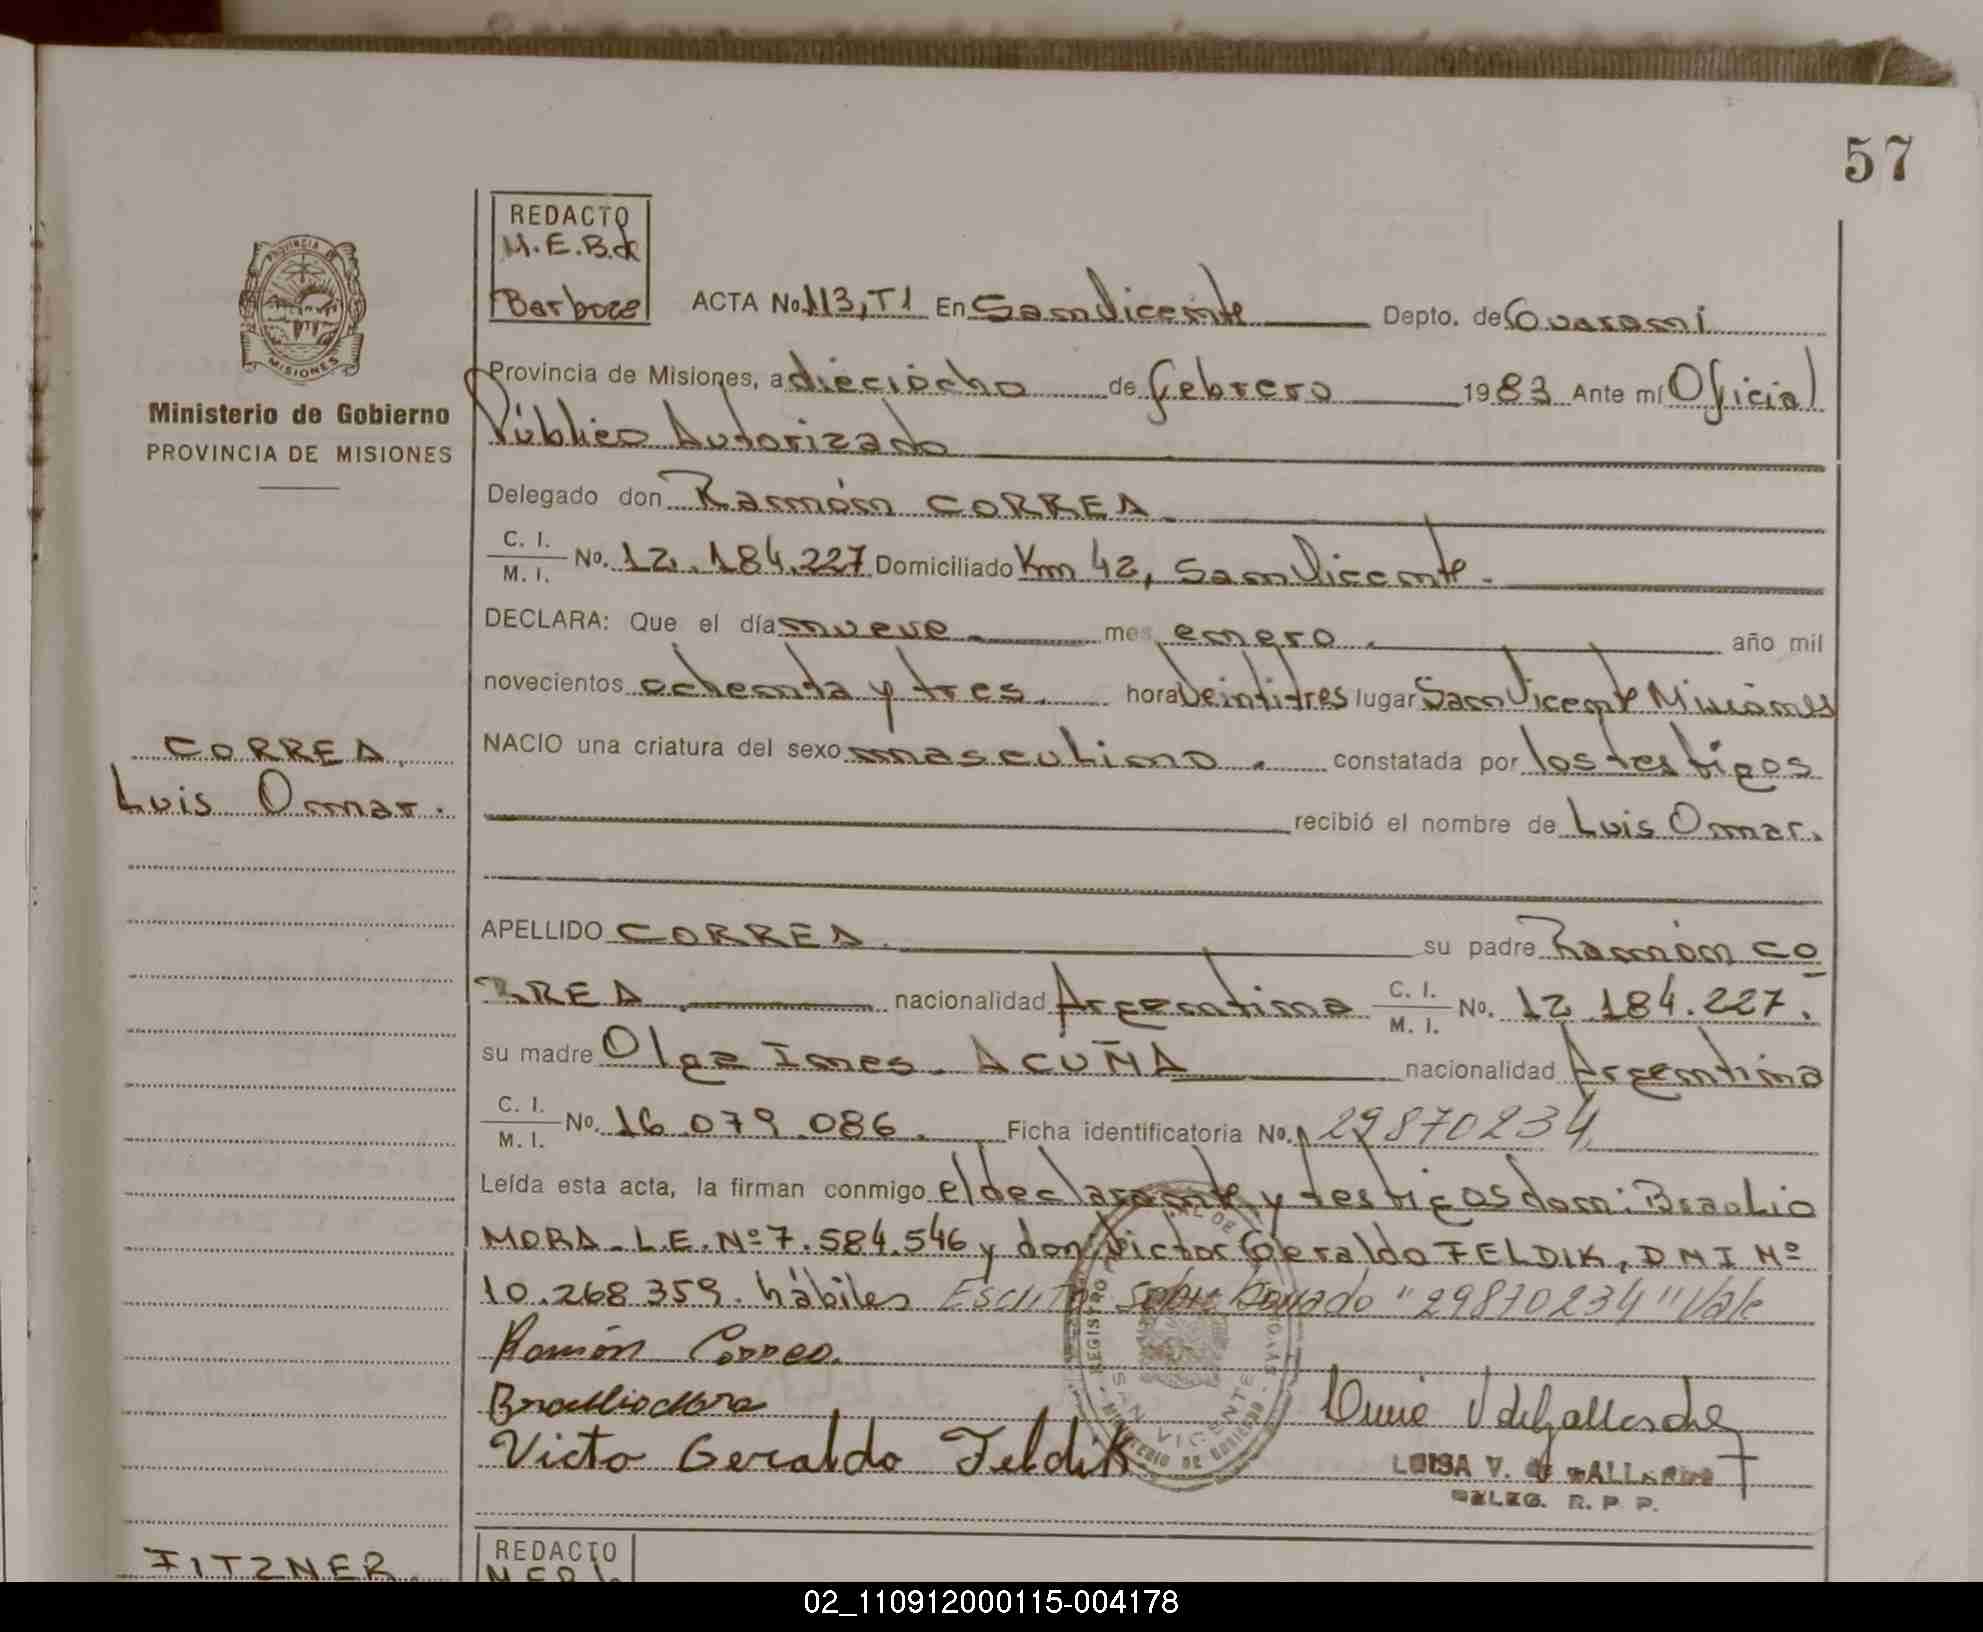 57
REDACTO
M.E.B.de
Barboze
ACTA No. 113, T1 En San Vicente Depto. de Guaraní
PROVINCIA DE MISIONES
Provincia de Misiones, a dieciocho de febrero 1983 Ante mí Oficial
Ministerio de Gobierno
PROVINCIA DE MISIONES
Público Autorizado
Delegado don Ramón CORREA
C. I.
M. I. No. 12.184.227 Domiciliado Km 42, San Vicente.
DECLARA: Que el día nueve mes enero. año mil
novecientos ochenta y tres. hora Veintitres lugar San Vicente Misiones
CORREA
Luis Omar.
NACIO una criatura del sexo masculino. constatada por los testigos
recibió el nombre de Luis Omar.
APELLIDO CORREA. su padre Ramón CO
RREA. nacionalidad Argentina C. I.
M. I. No. 12.184.227.
su madre Olga Ines. ACUÑA nacionalidad Argentina
C. I.
M. I. No. 16.079.086. Ficha identificatoria No. 29870234
Leída esta acta, la firman conmigo el declarante y testigos don: Braulio
MORA. L.E. Nº 7.584.546 y don: Victor Geraldo FELDIK, DNI Nº
10.268.359. hábiles Escrito sobre borrado "29870234" Vale
Ramón Correa.
Braulio Mora
Victo Geraldo Feldik
REGISTRO
SAN VICENTE
MINISTERIO DE GOBIERNO
LUISA V. de GALLARDO
DELEG. R. P. P.
FITZNER.
REDACTO
02_110912000115-004178